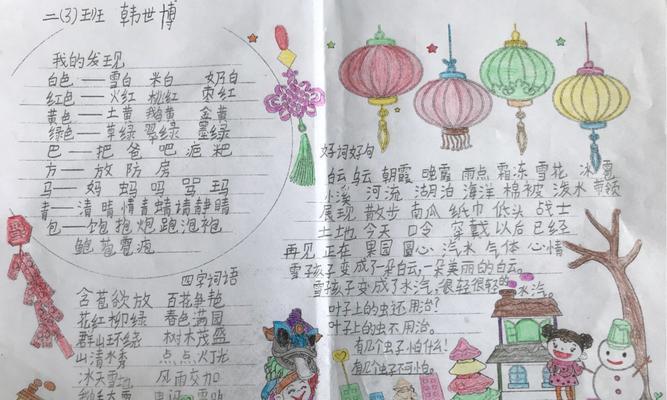 二(3)班 韩世博
我的发现
白色——雪白 米白 奶白
红色——火红 桃红 枣红
黄色——土黄 鹅黄 金黄
绿色——草绿 翠绿 墨绿
巴——把 爸 吧 疤 粑
方——放 防 房
马——妈 蚂 吗 骂 玛
青——清 晴 情 青 蜻 请 静 睛
包——饱 抱 炮 跑 泡 袍
鲍 苞 雹
四字词语
含苞欲放 百花争艳
花红柳绿 春色满园
群山环绕 树木茂盛
山清水秀 点点灯光
冰天雪地 风雨交加
好词好句
白云 乌云 朝霞 晚霞 雨点 霜冻 雪花 冰雹
小溪 河流 湖泊 海洋 棉被 泼水
展现 散步 南瓜 纸巾 低头 战士
土地 今天 口令 穿戴 以后 已经
再见 正在 果园 圆心 汽水 气体 心情
雪孩子变成了一朵白云,一朵美丽的白云。
雪孩子变成了水汽,很轻很轻的水汽。
叶子上的虫还用治?
叶子上的虫不用治。
有几个虫子怕什么!
有几个虫子不可怕。